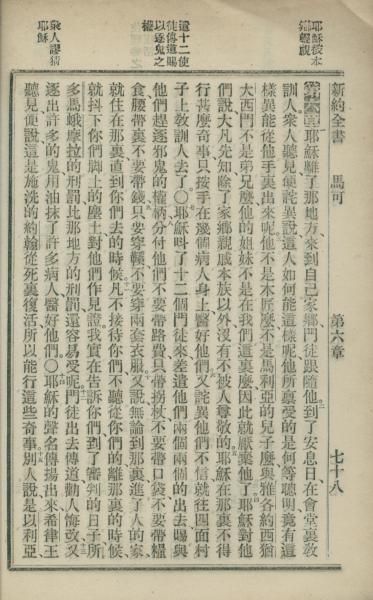 新約全書 馬可 第六章 七十八
耶穌被本
鄉輕視
遣十二使
徒傳道賜
以逐鬼之
權
衆人謬猜
耶穌
第六章耶穌離了那地方來到自己家鄉門徒跟隨他到了安息日在會堂裏教
訓人衆人聽見便詫異說這人如何能這樣呢他所稟受的是何等聰明竟有這
樣異能從他手裏出來呢他不是木匠麽不是馬利亞的兒子麽與雅各約西猶
大西門不是弟兄麽他的姐妹不是在我們這裏麽因此就厭棄他了耶穌對他
們說大凡先知除了家鄉親戚本族以外沒有不被人尊敬的耶穌在那裏不得
行甚麽奇事只按手在幾個病人身上醫好他們又詫異他們不信就往四面村
子上教訓人去了○耶穌呌了十二個門徒來差遣他們兩個兩個的出去賜與
他們趕逐邪鬼的權柄分付他們不要帶路費只帶拐杖不要帶口袋不要帶糧
食腰帶裏不要帶錢只要穿鞋不要穿兩套衣服又說無論到那裏進了人的家
就住在那裏直到你們去的時候凡不接待你們不聽從你們的離那裏的時候
就抖下你們脚上的塵土對他們作見證我實在告訴你們到了審判的日子所
多馬蛾摩拉的刑罰比那地方的刑罰還容易受呢門徒出去傳道勸人悔改又
逐出許多的鬼用油抹了許多病人醫好他們○耶穌的聲名傳揚出來希律王
聽見便說這是施洗的約翰從死裏復活所以能行這些奇事別人說是以利亞